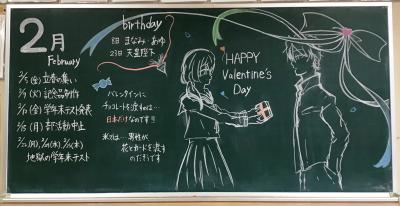 2月
February
2/5(金)立春の集い
2/9(火)記念品制作
2/12(金)学年末テスト発表
2/15(月)部活動中止
2/22(月),2/24(水),2/25(木)
地獄の学年末テスト
birthday
8日 まなみ・あゆ
23日 天皇陛下
バレンタインに
チョコレートを渡すのは…
日本だけなのです!!
米では… 男性が
花とカードを渡す
のだそうです
HAPPY
Valentine's
Day